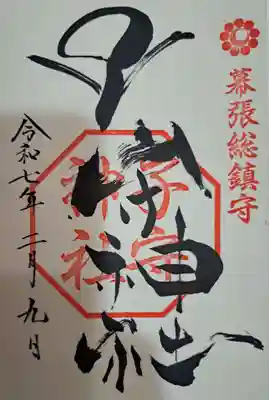 幕張総鎮守
子守神社
子守神社
令和七年二月九日